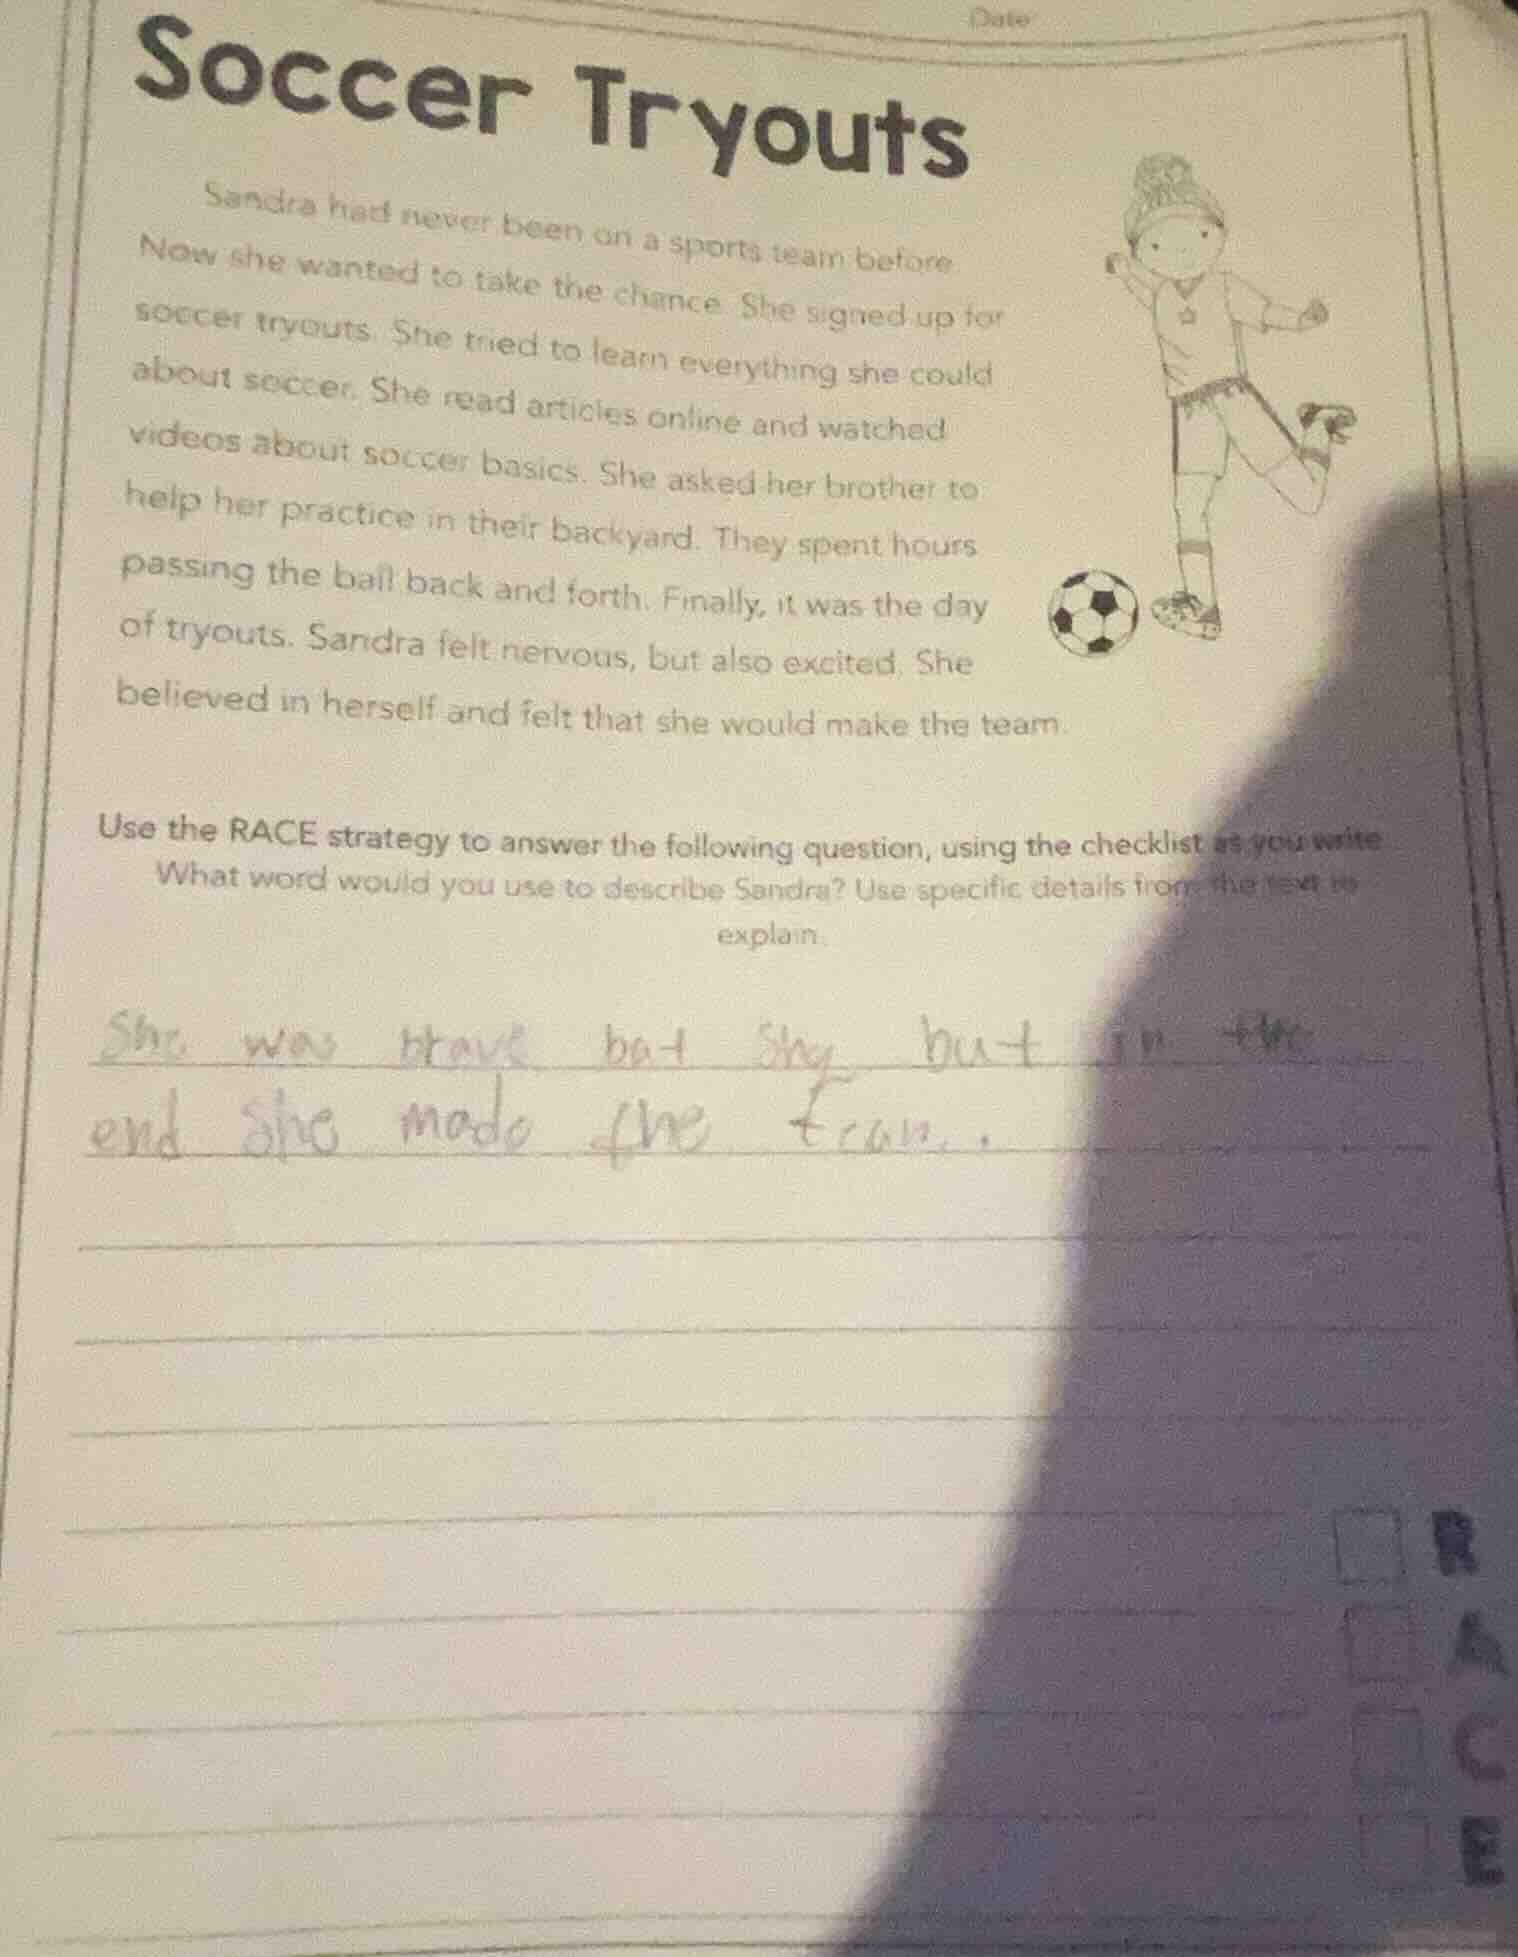 Date
Soccer Tryouts
Sandra had never been on a sports team before.
Now she wanted to take the chance. She signed up for
soccer tryouts. She tried to learn everything she could
about soccer. She read articles online and watched
videos about soccer basics. She asked her brother to
help her practice in their backyard. They spent hours
passing the ball back and forth. Finally, it was the day
of tryouts. Sandra felt nervous, but also excited. She
believed in herself and felt that she would make the team.
Use the RACE strategy to answer the following question, using the checklist as you write
What word would you use to describe Sandra? Use specific details from the text to
explain.
She was brave bat shy but in the
end she made the team.
R
A
C
E